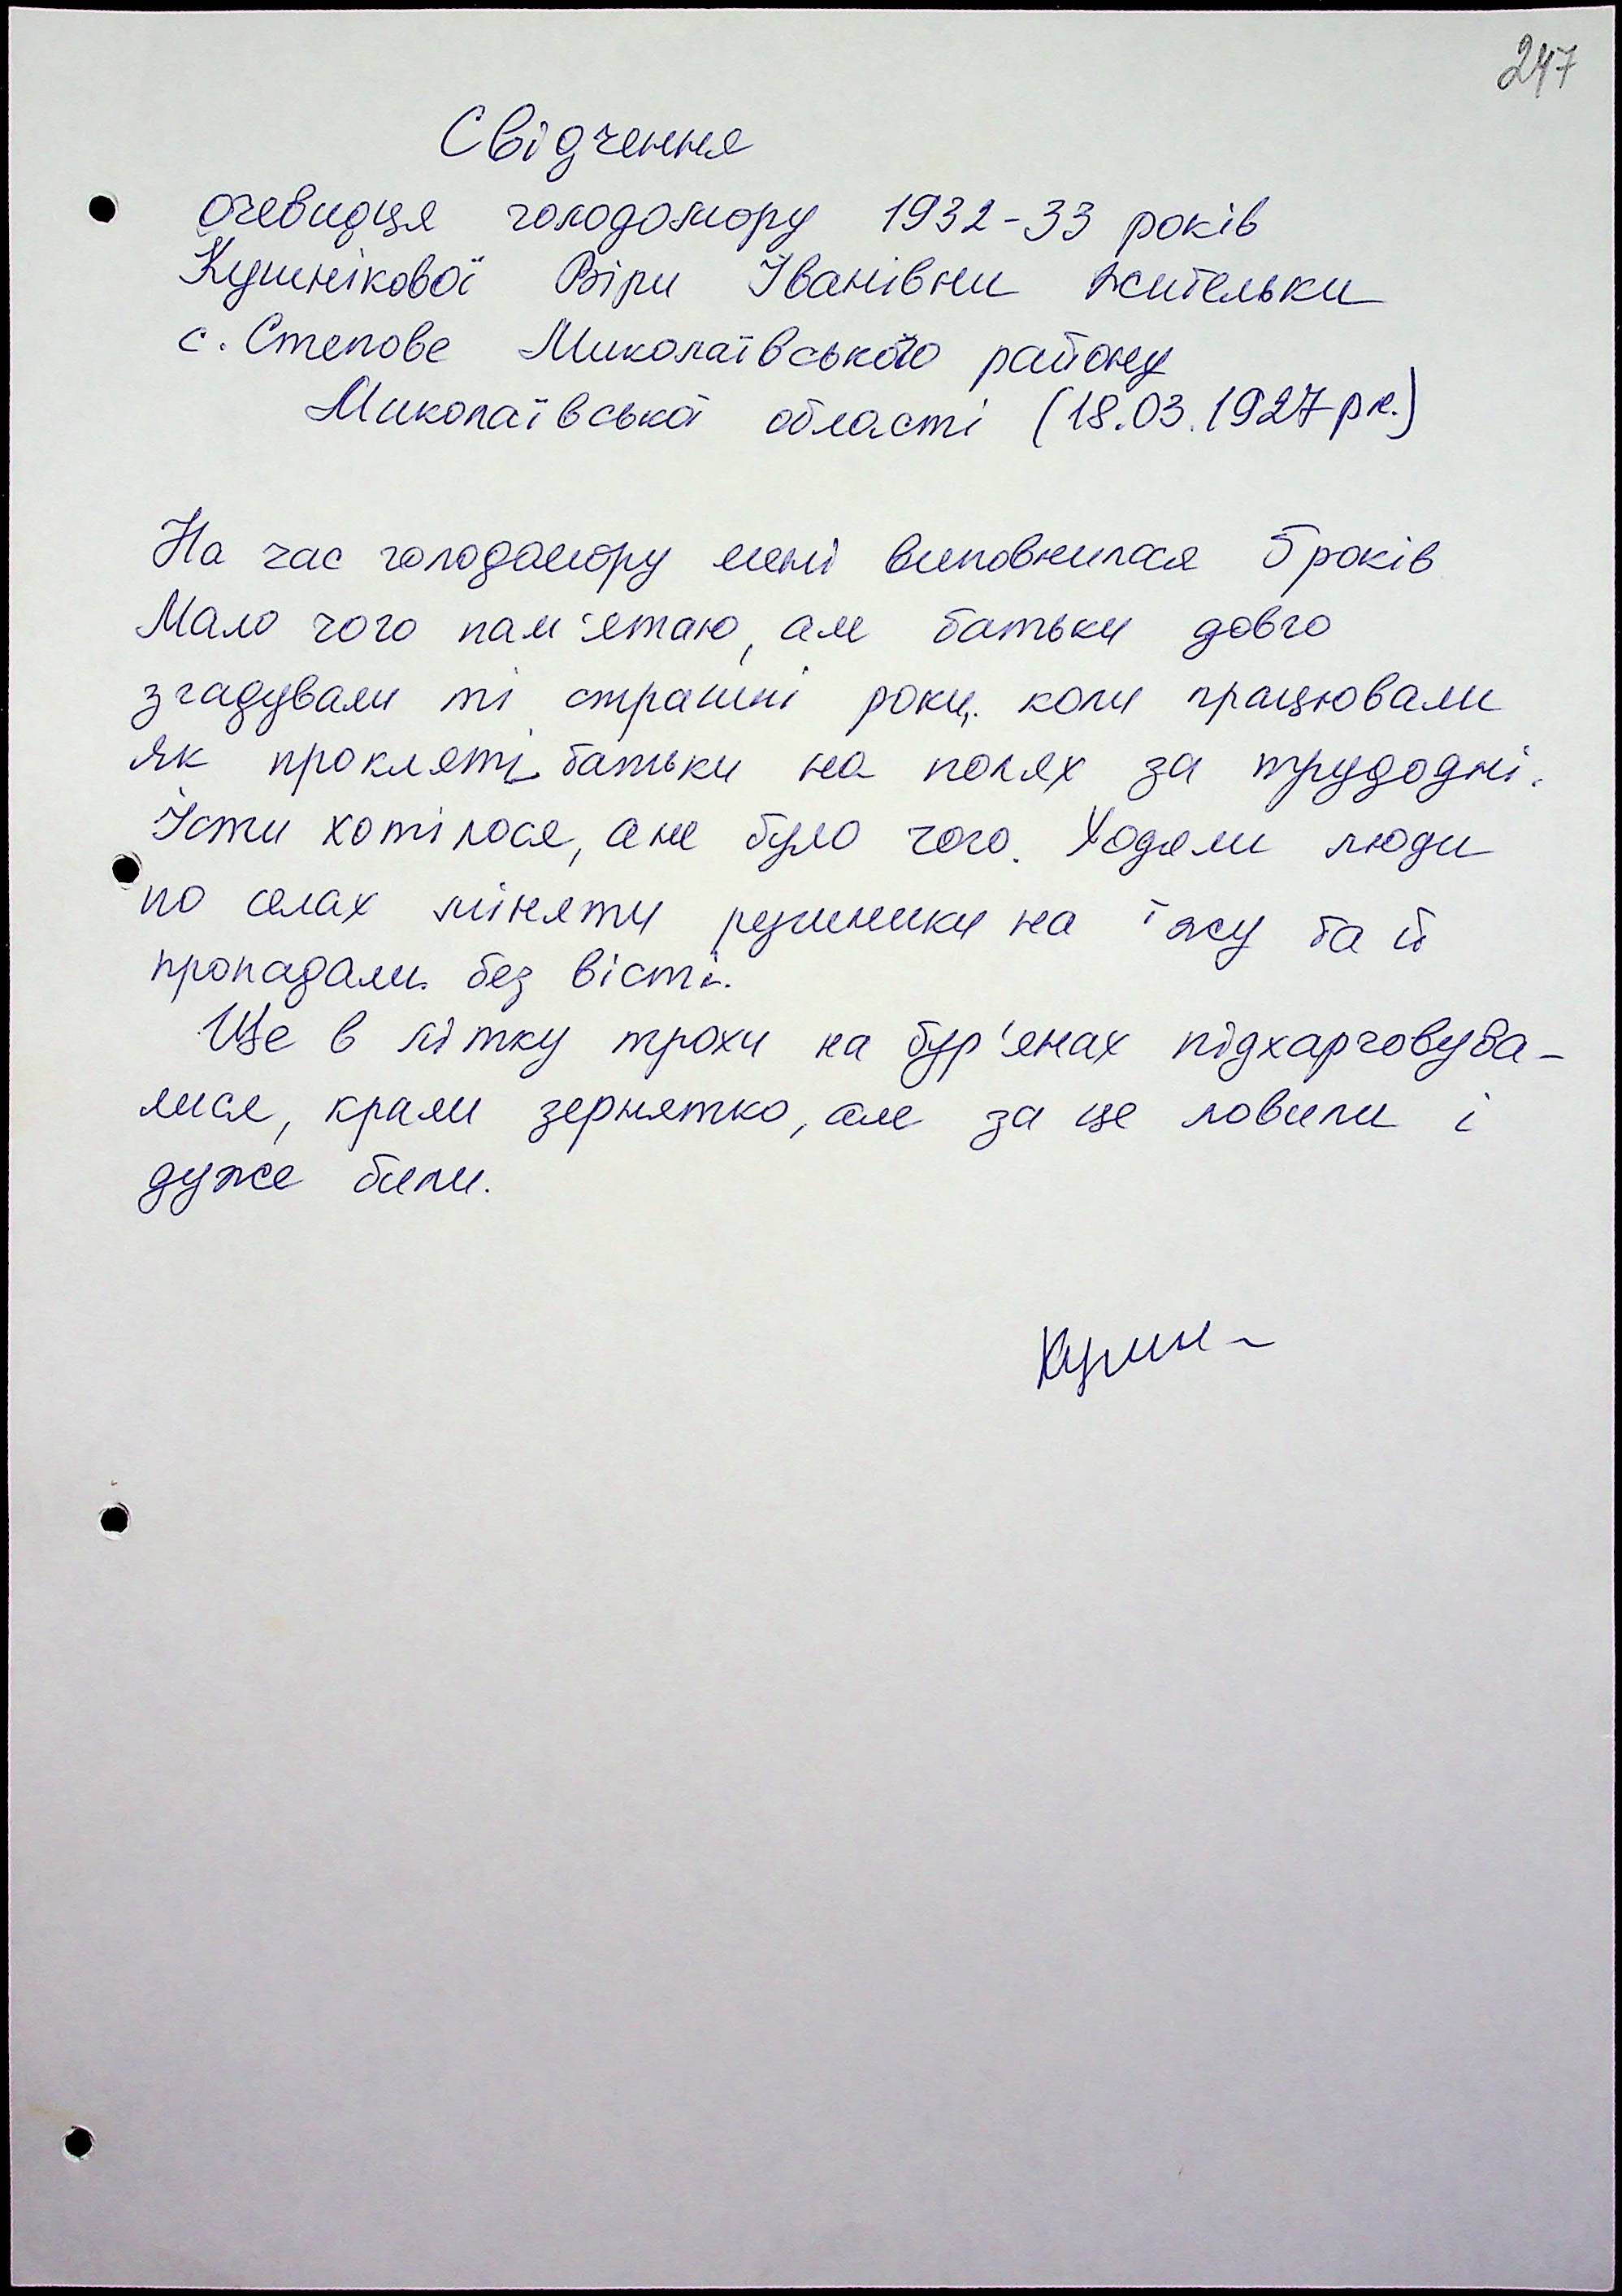 247
Свідчення
очевидця голодомору 1932-33 років
Кушнікової Віри Іванівни жительки
с. Степове Миколаївського району
Миколаївської області (18.03.1927 р.н.)
На час голодомору мені виповнилося 5 років
Мало чого пам'ятаю, але батьки довго
згадували ті страшні роки, коли працювали
як прокляті батьки на полях за трудодні.
Їсти хотілося, а не було чого. Ходили люди
по селах міняти на їжу та й
пропадали без вісті.
Ще в літку трохи на бур'янах підхарчовува-
лися, крали зернятко, але за це ловили і
дуже били.